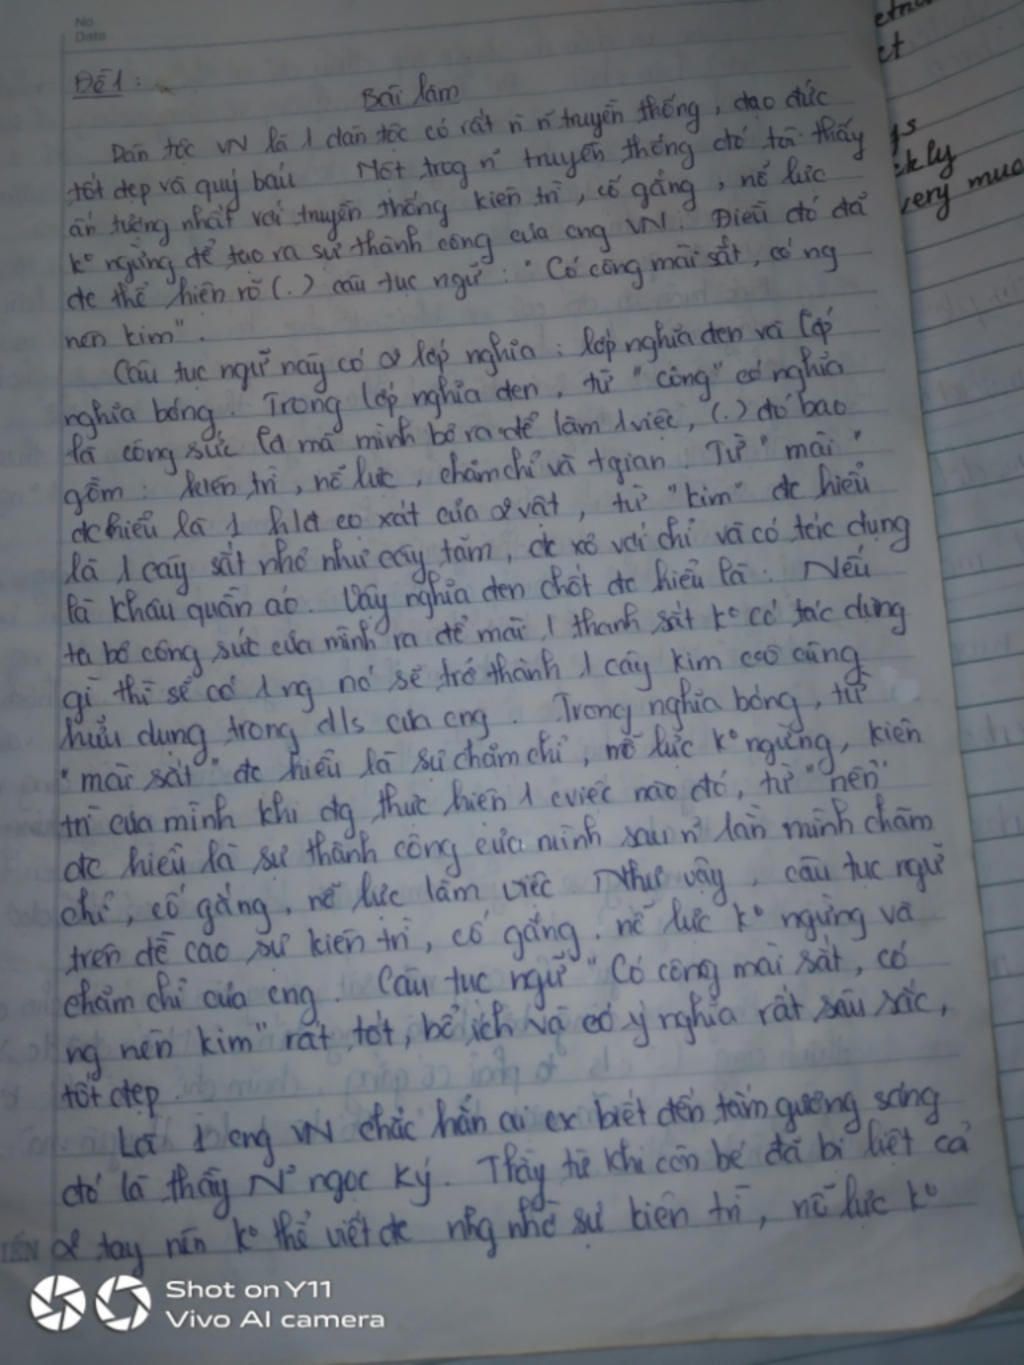 No
Date
Đề 1 :
Bài làm
Dân tộc VN là 1 dân tộc có rất n n~ truyền thống, đạo đức
tốt đẹp và quý báu Một trog n~ truyền thống đó tôi thấy
ấn tượng nhất với truyền thống kiên trì, cố gắng, nỗ lực
k° ngừng để tạo ra sự thành công của cng VN. Điều đó đã
đc thể hiện rõ (.) câu tục ngữ : "Có công mài sắt, có ng
nên kim".
Câu tục ngữ này có 2 lớp nghĩa : lớp nghĩa đen và lớp
nghĩa bóng. Trong lớp nghĩa đen, từ "công" có nghĩa
là công sức là mà mình bỏ ra để làm 1 việc, (.) đó bao
gồm : kiên trì, nỗ lực, chăm chỉ và tgian. Từ "mài"
đc hiểu là 1 hđ cọ xát của 2 vật, từ "kim" đc hiểu
là 1 cây sắt nhỏ như cây tăm, đc xỏ với chỉ và có tác dụng
là khâu quần áo. Vậy nghĩa đen chốt đc hiểu là : Nếu
ta bỏ công sức của mình ra để mài 1 thanh sắt k° có tác dụng
gì thì sẽ có 1 ng nó sẽ trở thành 1 cây kim cũng
hữu dụng trong đ/s của cng. Trong nghĩa bóng, từ
"mài sắt" đc hiểu là sự chăm chỉ, nỗ lực k° ngừng, kiên
trì của mình khi đg thực hiện 1 cviệc nào đó, từ "nên"
đc hiểu là sự thành công của mình sau n~ lần mình chăm
chỉ, cố gắng, nỗ lực làm việc Như vậy, câu tục ngữ
trên đề cao sự kiên trì, cố gắng, nỗ lực k° ngừng và
chăm chỉ của cng. Câu tục ngữ "Có công mài sắt, có
ng nên kim" rất tốt, bổ ích và có ý nghĩa rất sâu sắc,
tốt đẹp.
Là 1 cng VN chắc hẳn ai cx biết đến tấm gương sáng
đó là thầy N~ ngọc Ký. Thầy từ khi còn bé đã bị liệt cả
2 tay nên k° thể viết đc nhg nhờ sự kiên trì, nỗ lực k°
et
ckly
very muc
Shot on Y11
Vivo AI camera